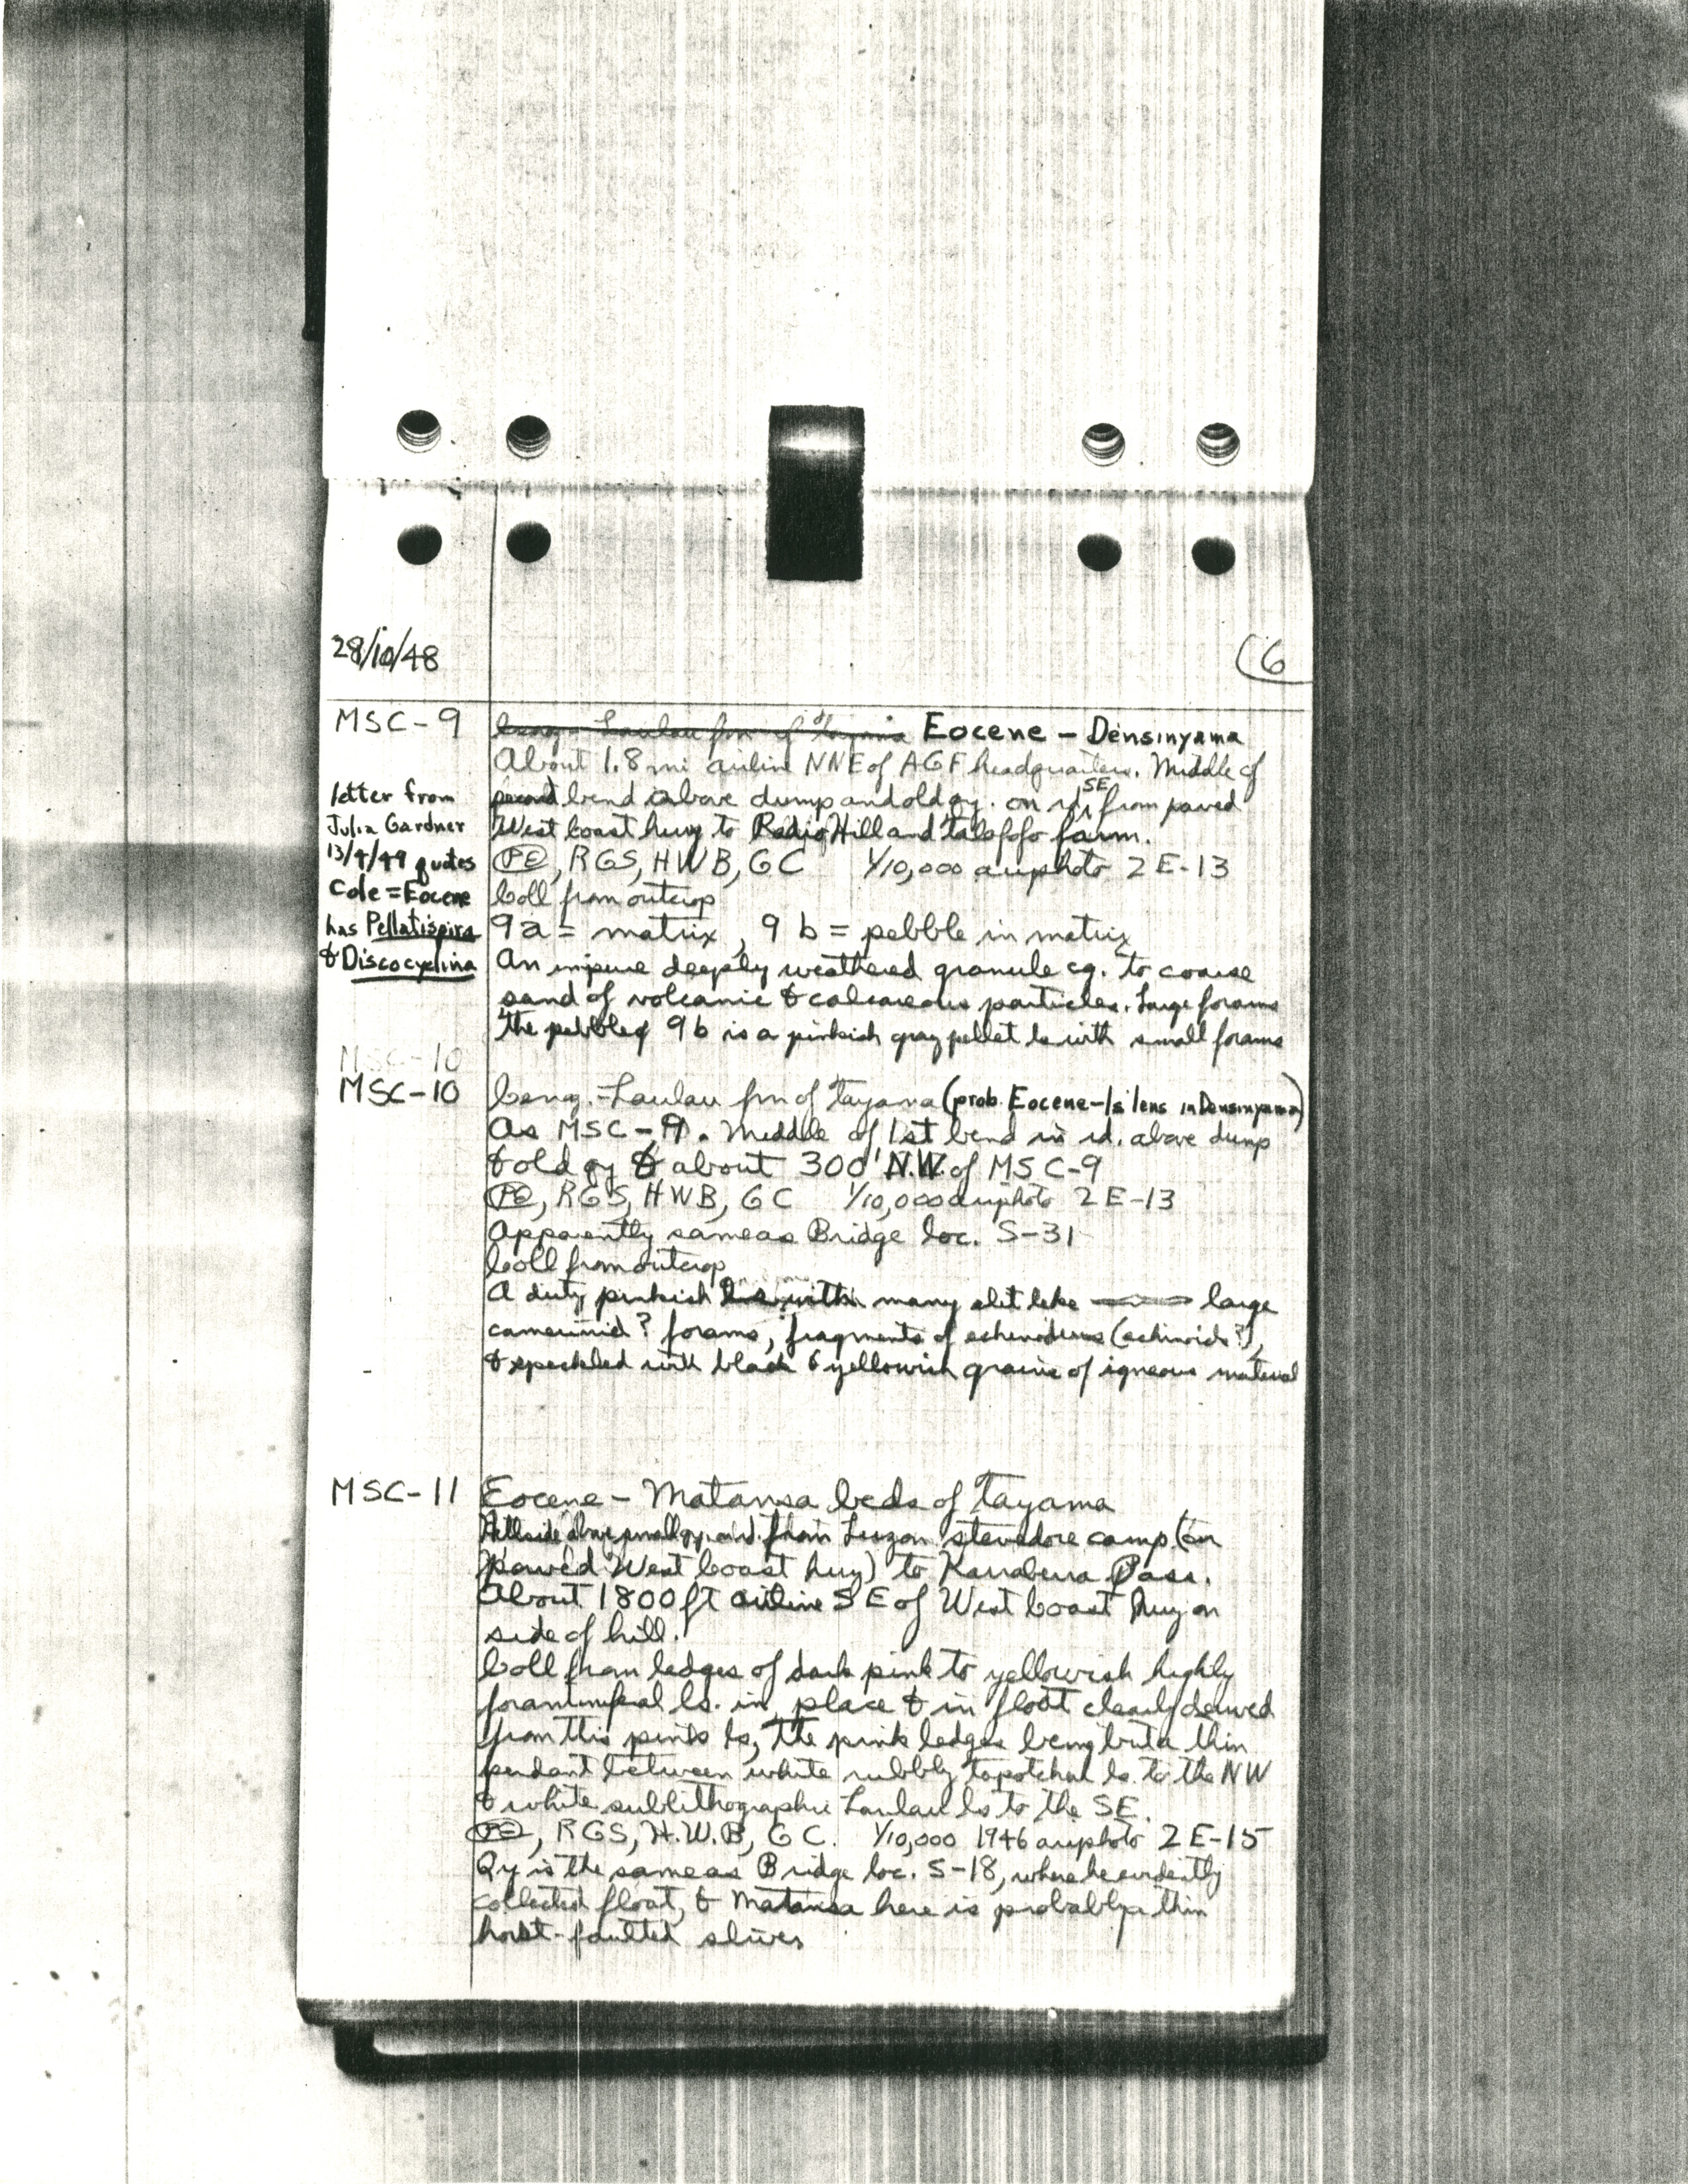 28/10/48
6
MSC-9
Cenoz - Laulau fm of Tayama Eocene - Densinyama
About 1.8 mi airline NNE of AGF headquarters. Middle of
second bend above dump and old qy. on rd. SE from paved
West Coast hwy to Radio Hill and Talofofo farm.
PC, RGS, HWB, GC 1/10,000 airphoto 2E-13
Coll from outcrop
9a = matrix, 9b = pebble in matrix
An impure deeply weathered granule cg. to coarse
sand of volcanic & calcareous particles. Large forams
The pebble of 9b is a pinkish gray pellet ls with small forams
letter from
Julia Gardner
13/4/49 quotes
Cole = Eocene
has Pellatispira
& Discocyclina
MSC-10
MSC-10
Cenoz. - Laulau fm of Tayama (prob. Eocene - ls lens in Densinyama)
As MSC-9. Middle of 1st bend in rd. above dump
& old qy & about 300' N.W. of MSC-9
PC, RGS, HWB, GC 1/10,000 airphoto 2E-13
Apparently same as Bridge loc. S-31
Coll from outcrop
A dirty pinkish ls with many slit like large
camerinid? forams, fragments of echinoderms (echinoids?),
& speckled with black & yellowish grains of igneous material
MSC-11
Eocene - Matansa beds of Tayama
Hillside above small qy. on rd. from Luzon stevedore camp (on
paved West Coast hwy) to Kanabera Pass.
About 1800 ft airline SE of West Coast hwy on
side of hill.
Coll from ledges of dark pink to yellowish highly
foraminiferal ls. in place & in float clearly derived
from this pink ls, the pink ledges being but a thin
pendant between white rubbly Tapotchau ls. to the NW
& white sublithographic Laulau ls to the SE.
PC, RGS, H.W.B, GC. 1/10,000 1946 airphoto 2E-15
Qy is the same as Bridge loc. S-18, where he evidently
collected float, & Matansa here is probably a thin
horst-faulted sliver